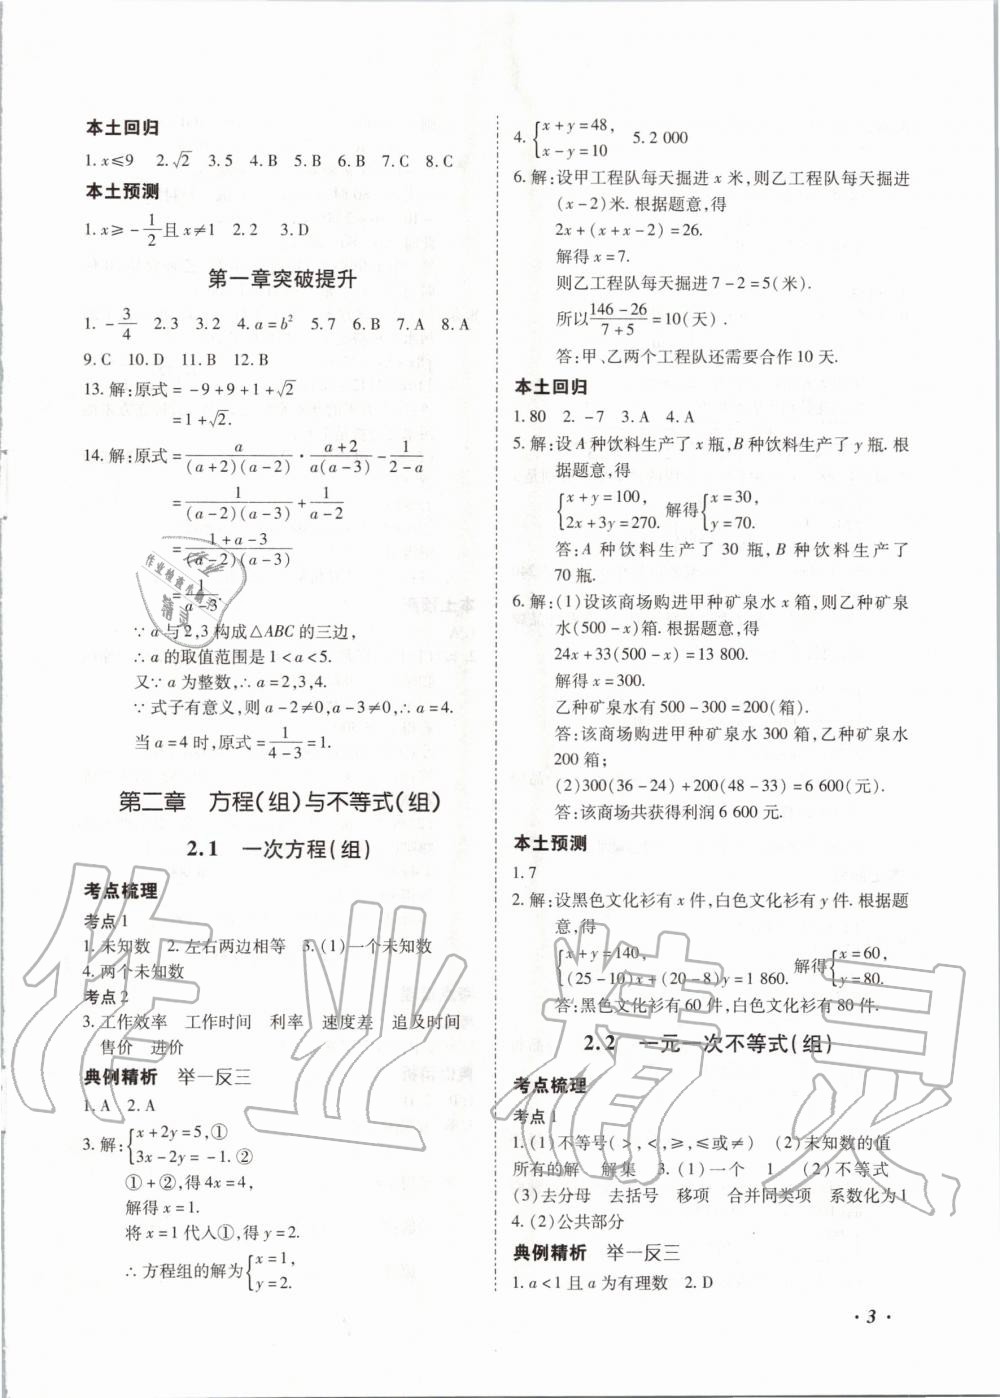 本土回归
1. x≤9　2. √2　3. 5　4. B　5. B　6. B　7. C　8. C
本土预测
1. x≥-1/2且x≠1　2. 2　3. D
第一章突破提升
1. -3/4　2. 3　3. 2　4. a=b²　5. 7　6. B　7. A　8. A
9. C　10. D　11. B　12. B
13. 解:原式=-9+9+1+√2
=1+√2.
14. 解:原式=a/((a+2)(a-2))·(a+2)/(a(a-3))-1/(2-a)
=1/((a-2)(a-3))+1/(a-2)
=(1+a-3)/((a-2)(a-3))
=1/(a-3).
∵a与2,3构成△ABC的三边,
∴a的取值范围是1<a<5.
又∵a为整数,∴a=2,3,4.
∵式子有意义,则a-2≠0,a-3≠0,∴a=4.
当a=4时,原式=1/(4-3)=1.
第二章　方程(组)与不等式(组)
2.1　一次方程(组)
考点梳理
考点1
1. 未知数　2. 左右两边相等　3. (1)一个未知数
4. 两个未知数
考点2
3. 工作效率　工作时间　利率　速度差　追及时间
售价　进价
典例精析　举一反三
1. A　2. A
3. 解:{x+2y=5,①
3x-2y=-1.②
①+②,得4x=4,
解得x=1.
将x=1代入①,得y=2.
∴方程组的解为{x=1,
y=2.
4. {x+y=48,
x-y=10　5. 2 000
6. 解:设甲工程队每天掘进x米,则乙工程队每天掘进
(x-2)米.根据题意,得
2x+(x+x-2)=26.
解得x=7.
则乙工程队每天掘进7-2=5(米).
所以(146-26)/(7+5)=10(天).
答:甲、乙两个工程队还需要合作10天.
本土回归
1. 80　2. -7　3. A　4. A
5. 解:设A种饮料生产了x瓶,B种饮料生产了y瓶.根
据题意,得
{x+y=100,
2x+3y=270. 解得{x=30,
y=70.
答:A种饮料生产了30瓶,B种饮料生产了
70瓶.
6. 解:(1)设该商场购进甲种矿泉水x箱,则乙种矿泉
水(500-x)箱.根据题意,得
24x+33(500-x)=13 800.
解得x=300.
乙种矿泉水有500-300=200(箱).
答:该商场购进甲种矿泉水300箱,乙种矿泉水
200箱;
(2)300(36-24)+200(48-33)=6 600(元).
答:该商场共获得利润6 600元.
本土预测
1. 7
2. 解:设黑色文化衫有x件,白色文化衫有y件.根据题
意,得
{x+y=140,
(25-10)x+(20-8)y=1 860. 解得{x=60,
y=80.
答:黑色文化衫有60件,白色文化衫有80件.
2.2　一元一次不等式(组)
考点梳理
考点1
1. (1)不等号(>,<,≥,≤或≠)　(2)未知数的值
所有的解　解集　3. (1)一个　1　(2)不等式
(3)去分母　去括号　移项　合并同类项　系数化为1
4. (2)公共部分
典例精析　举一反三
1. a<1且a为有理数　2. D
·3·
作业精灵